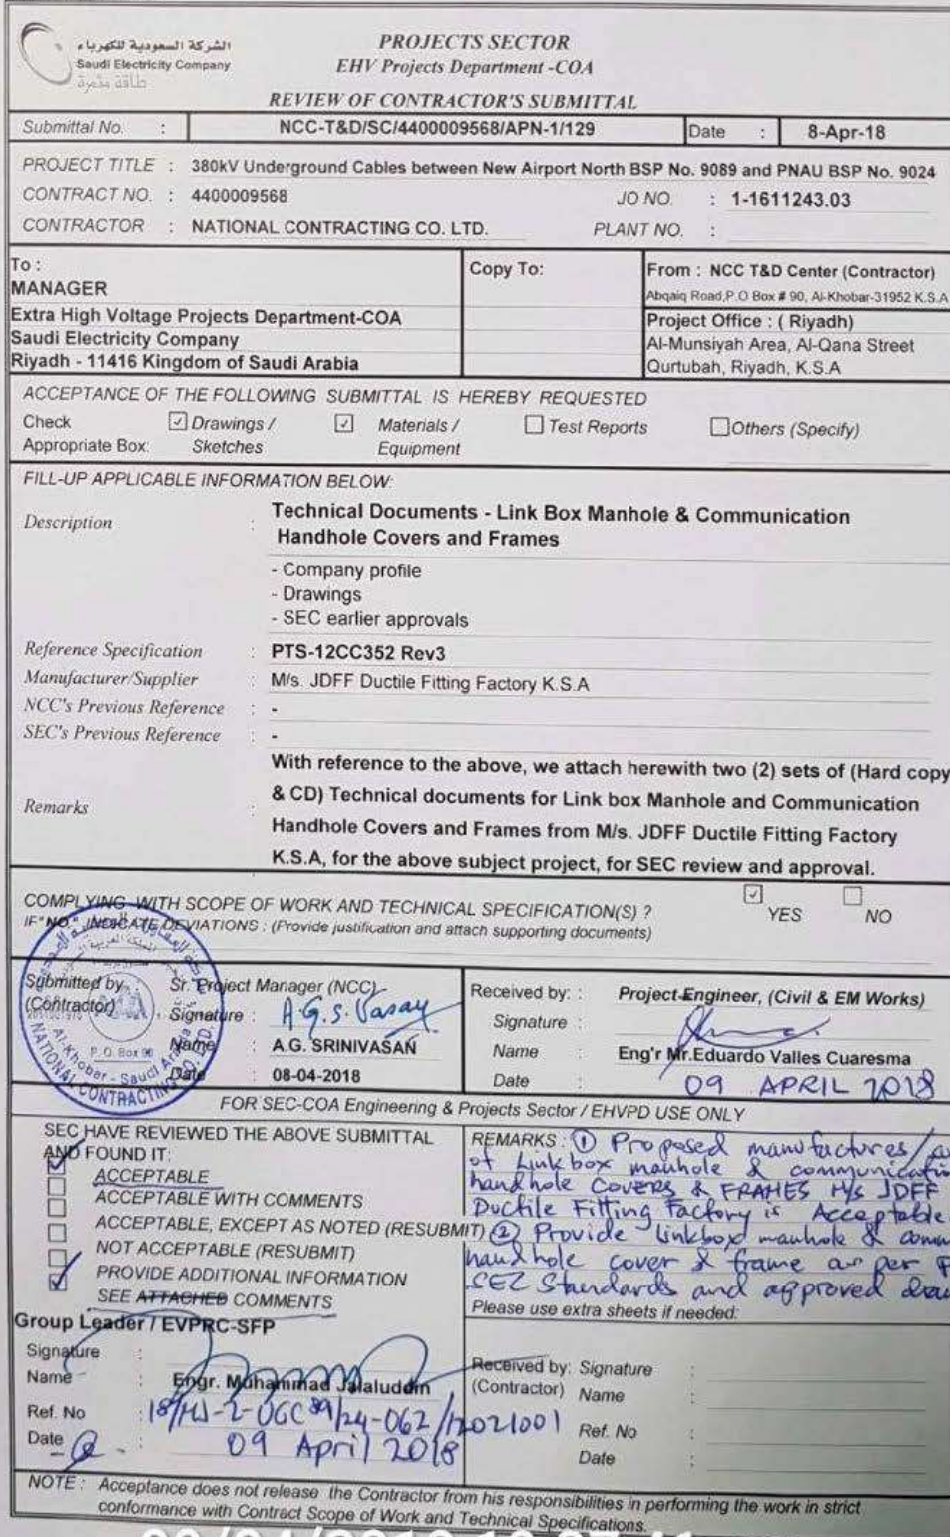 الشركة السعودية للكهرباء
Saudi Electricity Company
PROJECTS SECTOR
EHV Projects Department -COA
REVIEW OF CONTRACTOR'S SUBMITTAL
Submittal No. : NCC-T&D/SC/4400009568/APN-1/129 Date : 8-Apr-18
PROJECT TITLE : 380kV Underground Cables between New Airport North BSP No. 9089 and PNAU BSP No. 9024
CONTRACT NO. : 4400009568 JO NO. : 1-1611243.03
CONTRACTOR : NATIONAL CONTRACTING CO. LTD. PLANT NO. :
To : Copy To: From : NCC T&D Center (Contractor)
MANAGER Abqaiq Road,P.O Box # 90, Al-Khobar-31952 K.S.A
Extra High Voltage Projects Department-COA Project Office : ( Riyadh)
Saudi Electricity Company Al-Munsiyah Area, Al-Qana Street
Riyadh - 11416 Kingdom of Saudi Arabia Qurtubah, Riyadh, K.S.A
ACCEPTANCE OF THE FOLLOWING SUBMITTAL IS HEREBY REQUESTED
Check Drawings / Materials / Test Reports Others (Specify)
Appropriate Box: Sketches Equipment
FILL-UP APPLICABLE INFORMATION BELOW:
Description : Technical Documents - Link Box Manhole & Communication
Handhole Covers and Frames
- Company profile
- Drawings
- SEC earlier approvals
Reference Specification : PTS-12CC352 Rev3
Manufacturer/Supplier : M/s. JDFF Ductile Fitting Factory K.S.A
NCC's Previous Reference : -
SEC's Previous Reference : -
With reference to the above, we attach herewith two (2) sets of (Hard copy
Remarks : & CD) Technical documents for Link box Manhole and Communication
Handhole Covers and Frames from M/s. JDFF Ductile Fitting Factory
K.S.A, for the above subject project, for SEC review and approval.
COMPLYING WITH SCOPE OF WORK AND TECHNICAL SPECIFICATION(S) ? YES NO
IF "NO." INDICATE DEVIATIONS : (Provide justification and attach supporting documents)
Submitted by Sr. Project Manager (NCC)
(Contractor) Signature :
Name : A.G. SRINIVASAN
Date : 08-04-2018
P.O. Box 90
Al-Khobar - Saudi Arabia
NATIONAL CONTRACTING CO. LTD.
Received by: : Project Engineer, (Civil & EM Works)
Signature :
Name : Eng'r Mr.Eduardo Valles Cuaresma
Date : 09 APRIL 2018
FOR SEC-COA Engineering & Projects Sector / EHVPD USE ONLY
SEC HAVE REVIEWED THE ABOVE SUBMITTAL
AND FOUND IT:
ACCEPTABLE
ACCEPTABLE WITH COMMENTS
ACCEPTABLE, EXCEPT AS NOTED (RESUBMIT)
NOT ACCEPTABLE (RESUBMIT)
PROVIDE ADDITIONAL INFORMATION
SEE ATTACHED COMMENTS
REMARKS : ① Proposed manufactures/
of Linkbox manhole & communicatio
handhole COVERS & FRAMES M/s JDFF
Ductile Fitting Factory is Acceptable
② Provide linkbox manhole & comm
handhole cover & frame as per
SEC Standards and approved
Please use extra sheets if needed:
Group Leader / EVPRC-SFP
Signature :
Name : Engr. Muhammad Jalaluddin
Ref. No :
Date : 09 April 2018
Received by: Signature :
(Contractor) Name :
Ref. No :
Date :
NOTE : Acceptance does not release the Contractor from his responsibilities in performing the work in strict
conformance with Contract Scope of Work and Technical Specifications.